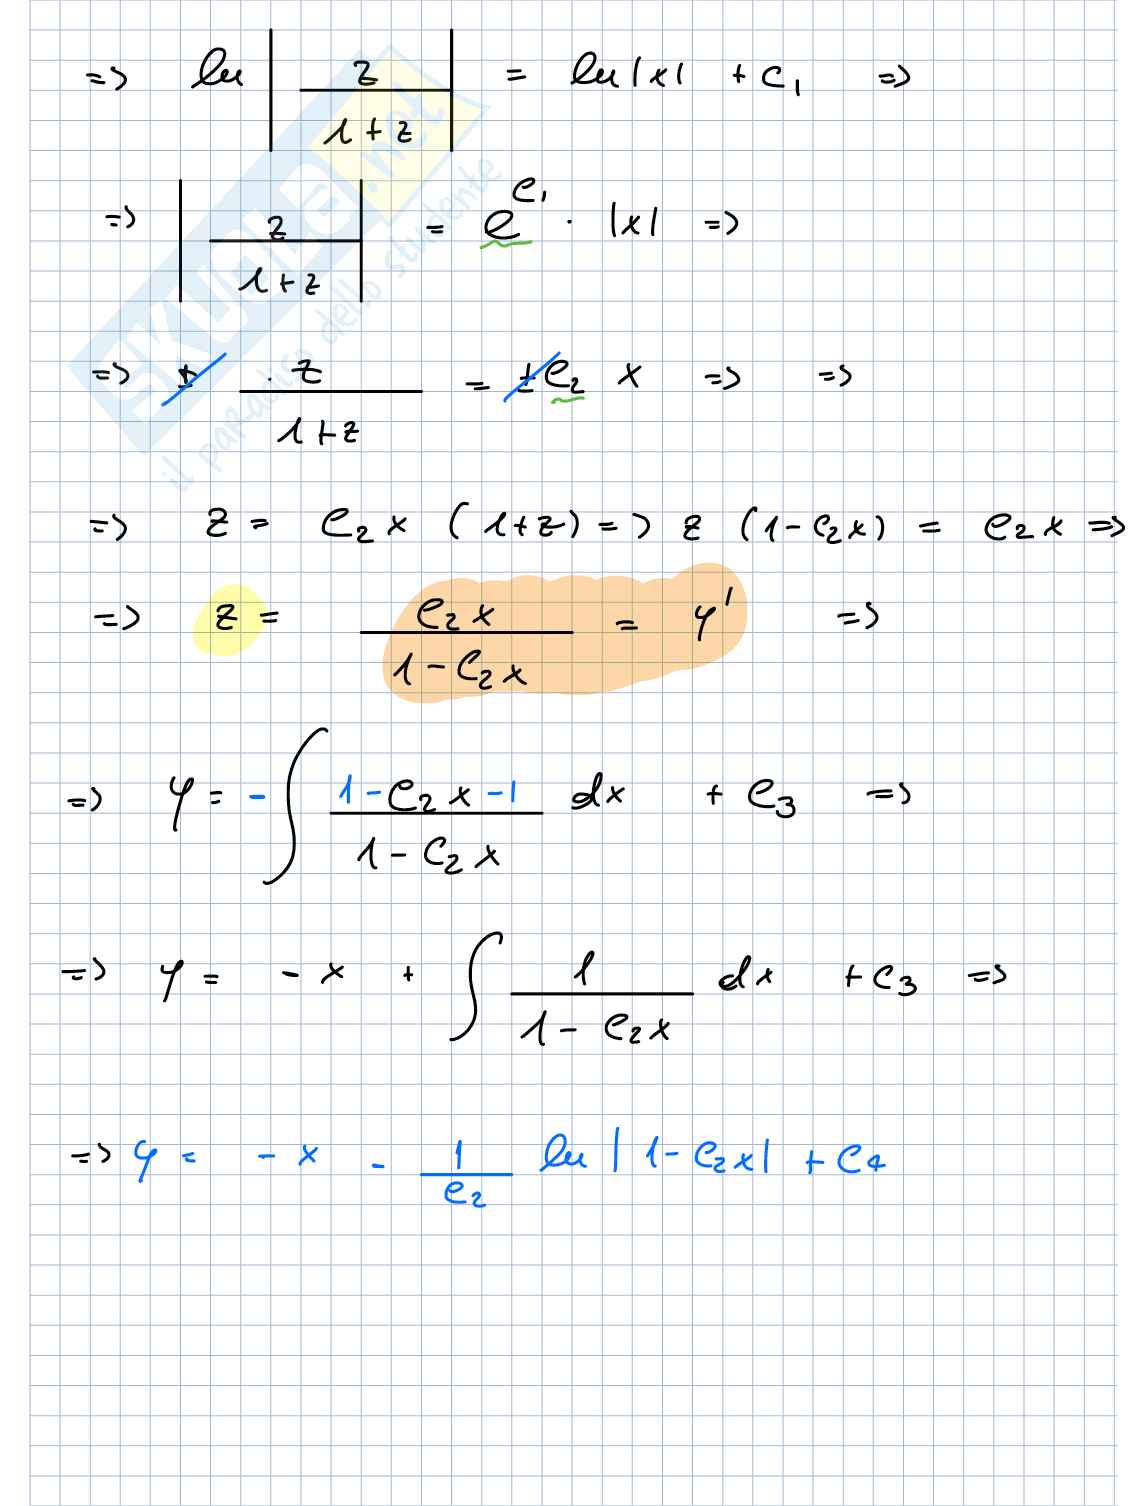 => ln | z / 1+z | = ln|x| + c₁ =>
=> | z / 1+z | = e^c₁ · |x| =>
=> ± z / 1+z = ±c₂ x => =>
=> z = c₂x (1+z) => z (1-c₂x) = c₂x =>
=> z = c₂x / 1-c₂x = y' =>
=> y = - ∫ 1-c₂x-1 / 1-c₂x dx + c₃ =>
=> y = -x + ∫ 1 / 1-c₂x dx + c₃ =>
=> y = -x - 1/c₂ ln |1-c₂x| + c₄
SKUOLA.net
il paradiso dello studente